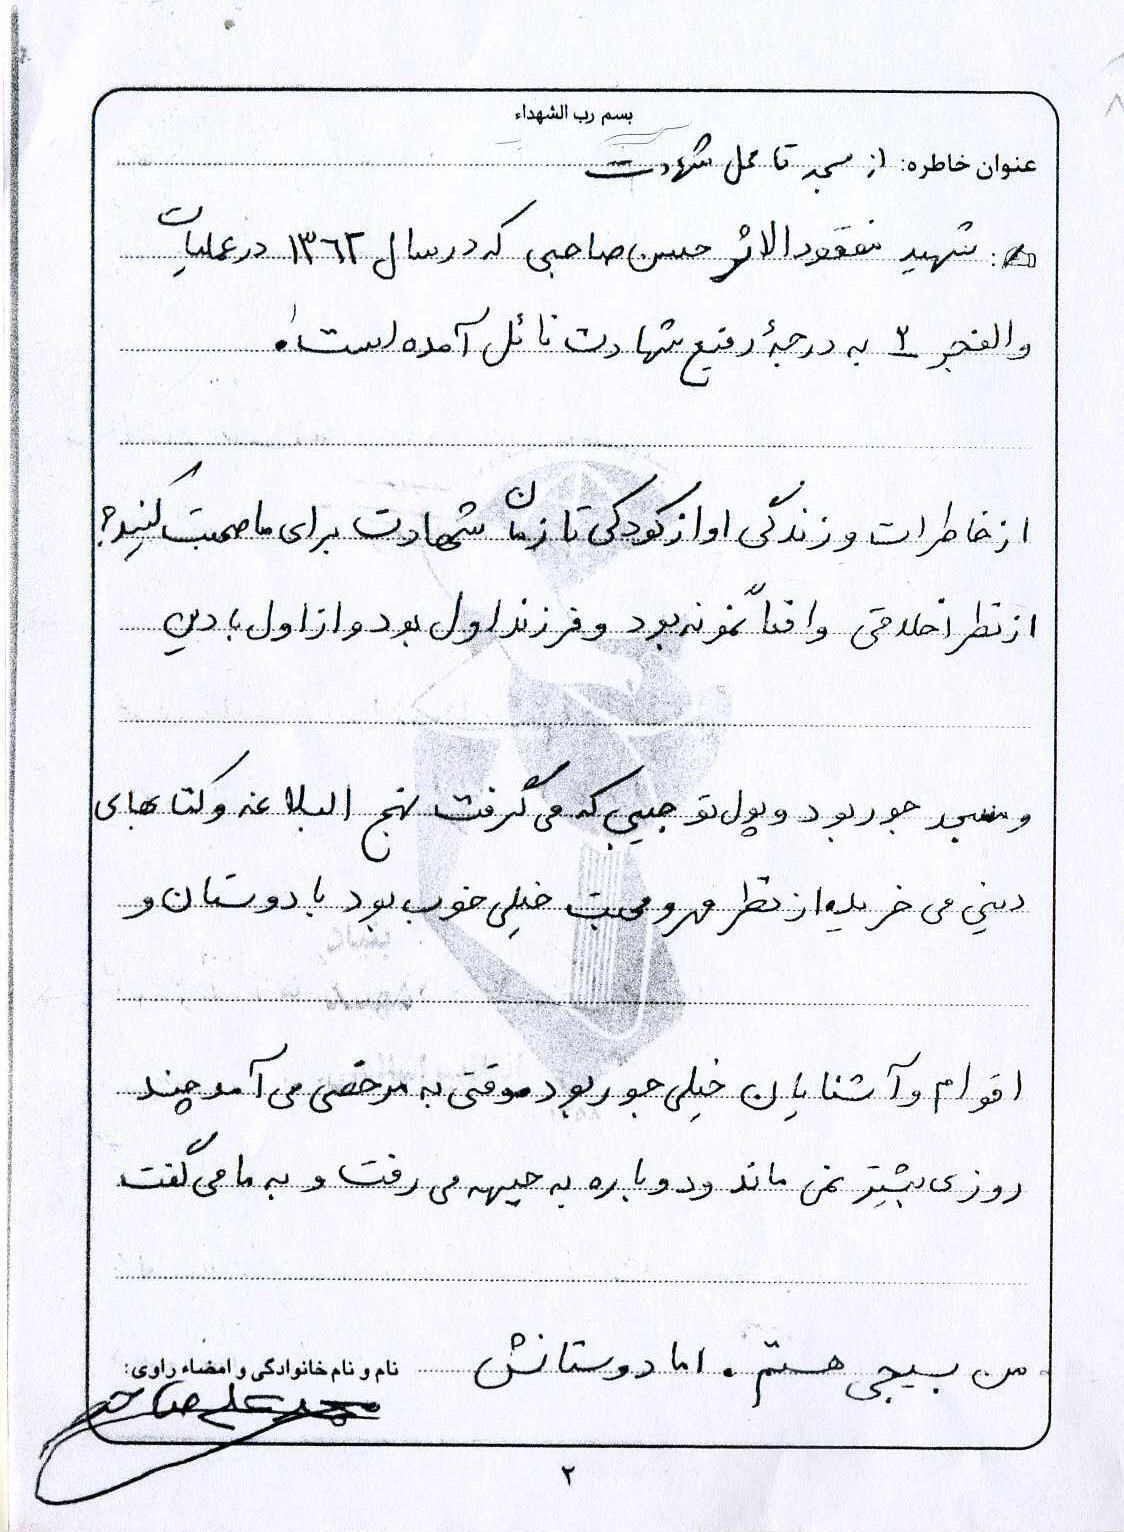 بسم رب الشهداء
عنوان خاطره: از مسجد تا محل شهادت
: شهید مفقودالاثر حسن صاحبی که در سال ۱۳۶۲ در عملیات
والفجر ۳ به درجهٔ رفیع شهادت نائل آمده است.
از خاطرات و زندگی او از کودکی تا زمان شهادت برای ما صحبت کنید؟
از نظر اخلاقی واقعاً نمونه بود و فرزند اول بود و از اول با دین
و مسجد جور بود و پول تو جیبی که می گرفت نهج البلاغه و کتابهای
دینی می خرید از نظر مهر و محبت خیلی خوب بود با دوستان و
اقوام و آشنایان خیلی جور بود موقتی به مرخصی می آمد چند
روزی بیشتر نمی ماند و دوباره به جبهه می رفت و به ما می گفت
من بسیجی هستم . اما دوستانش
نام و نام خانوادگی و امضاء راوی:
محمد علی صاحبی
۲